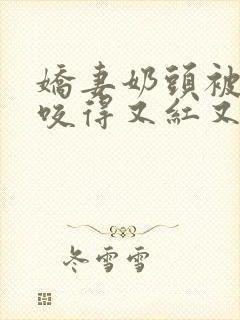 嬌妻奶頭被
咬得又紅又
冬雪雪